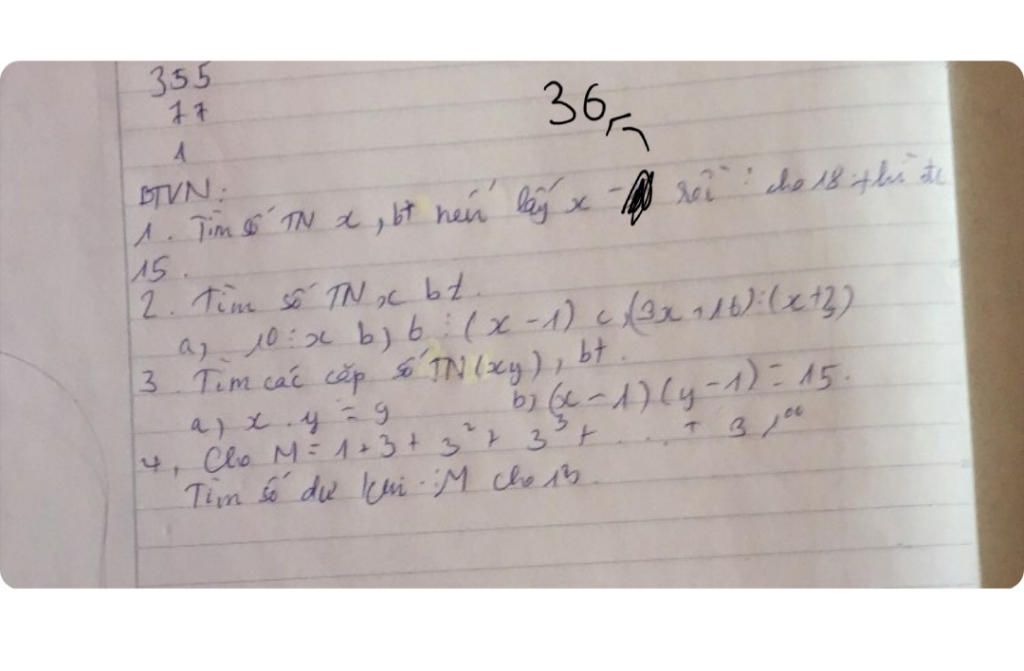 355
77
1
36
BTVN:
1. Tìm số TN x, bt nếu lấy x - rồi : cho 18 thì đc
15.
2. Tìm số TN x bt.
a, 10 ⋮ x b) 6 ⋮ (x - 1) c, (3x + 16) ⋮ (x + 3)
3. Tìm các cặp số TN (xy), bt.
a, x . y = 9 b, (x - 1) (y - 1) = 15.
4, Cho M = 1 + 3 + 3² + 3³ + .... + 3¹⁰⁰
Tìm số dư khi : M cho 13.